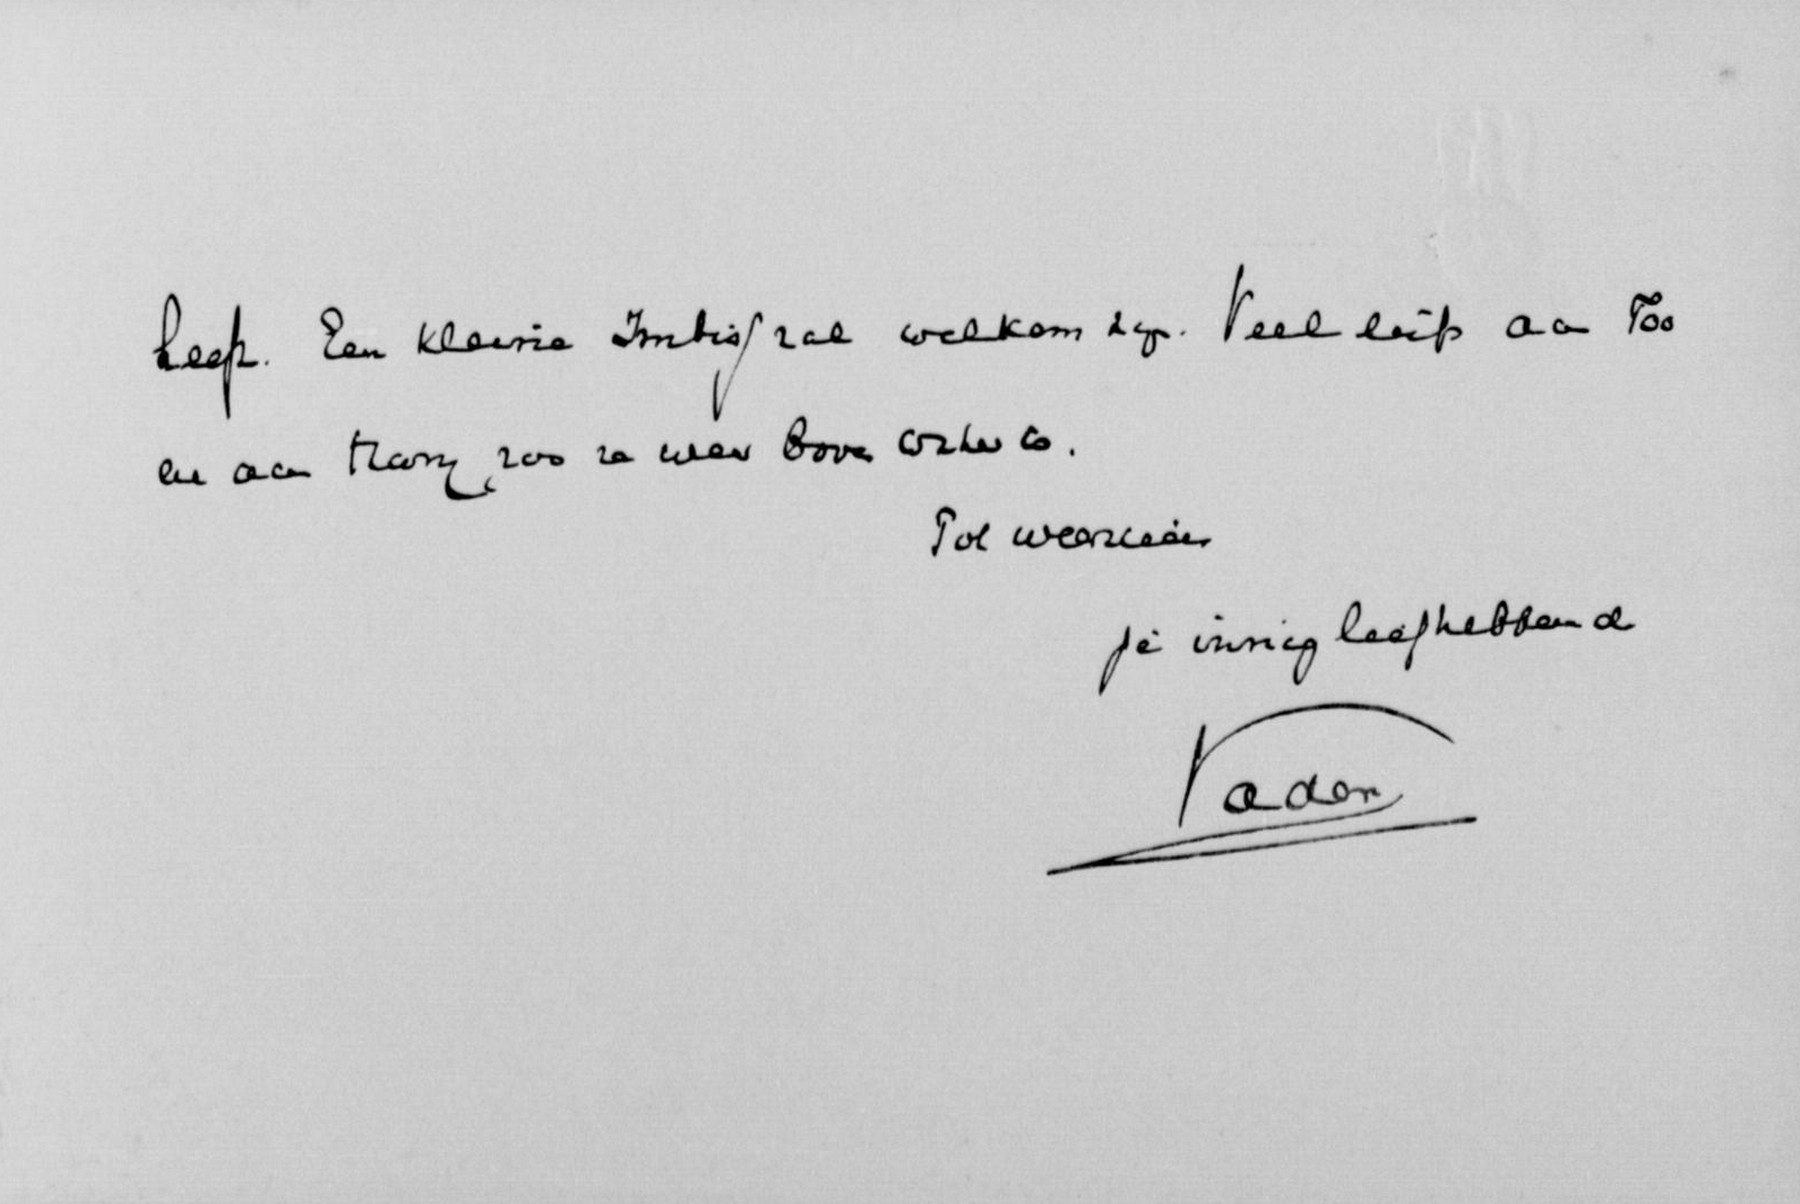 heeft. Een kleine Imbiß zal welkom zijn. Veel liefs aan Too
en aan Harry, zoo ze weer boven water is.
Tot weerzien
je innig liefhebbend
Vader